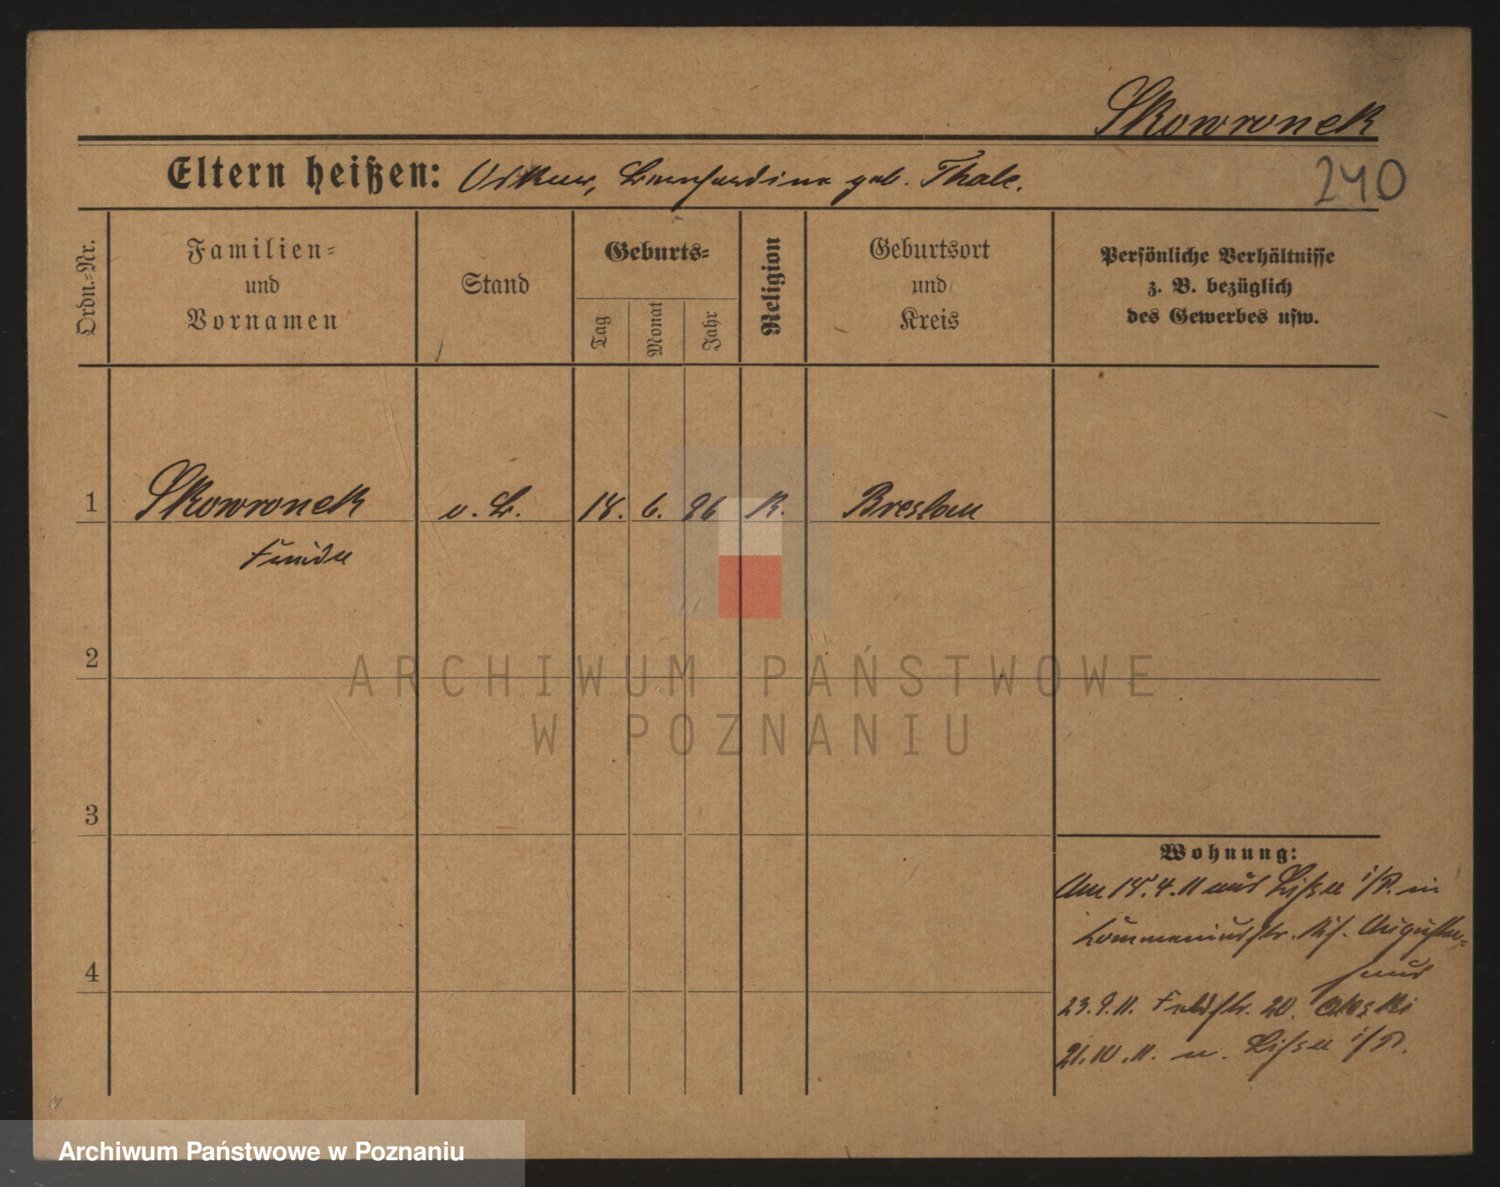 Skowronek
240
Eltern heißen: Oskar, Bernhardine geb. Thale.
Ordn.-Nr.
Familien-
und
Vornamen
Stand
Geburts-
Tag
Monat
Jahr
Religion
Geburtsort
und
Kreis
Persönliche Verhältnisse
z. B. bezüglich
des Gewerbes usw.
1 Skowronek 18. 6. K. Breslau
2
3
4
Wohnung:
Am 18.4.11 aus Lissa i/P. in
Augusta-
haus
23.9.11. Feldstr. 20.
21.10.11. n. Lissa i/P.
ARCHIWUM PAŃSTWOWE
W POZNANIU
Archiwum Państwowe w Poznaniu